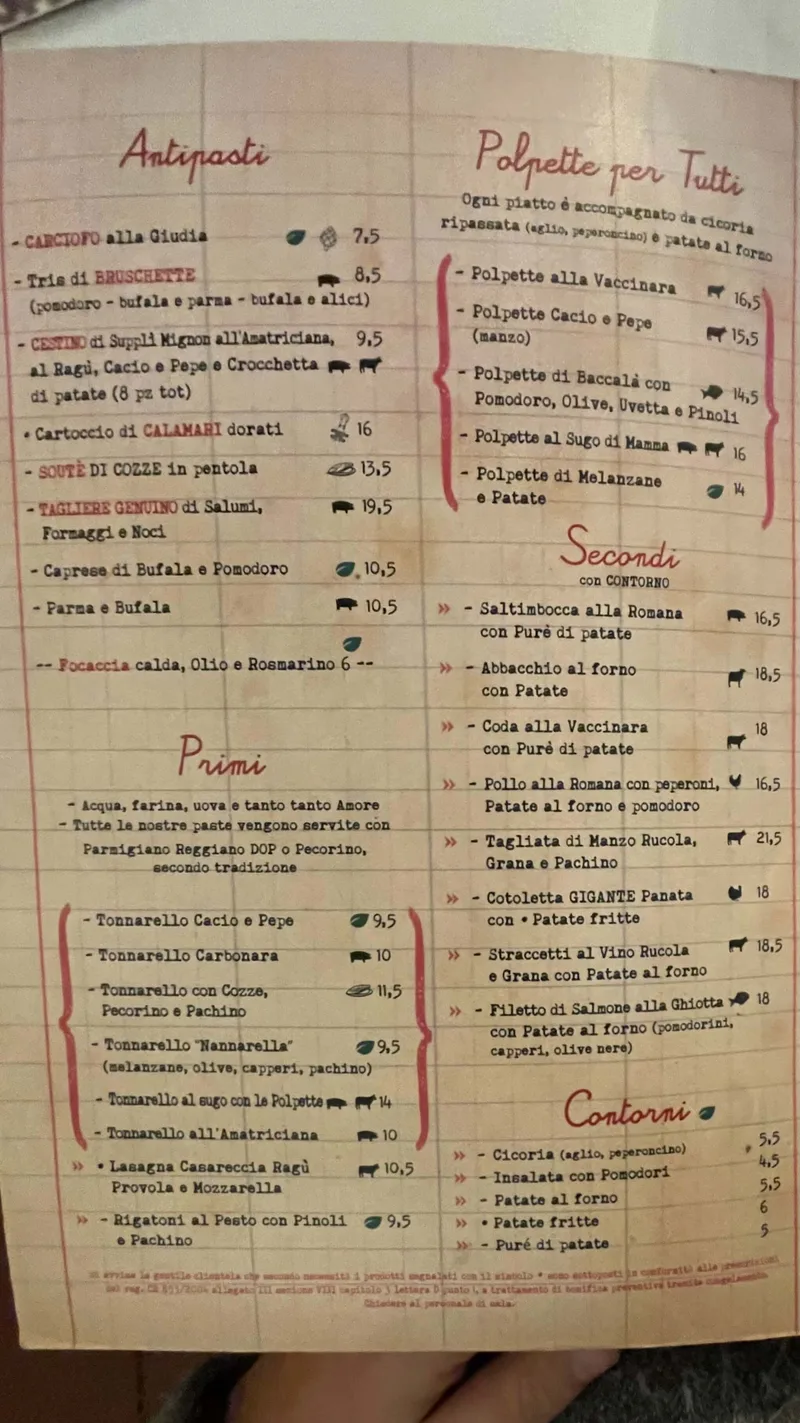 Antipasti
- CARCIOFO alla Giudia 7,5
- Tris di BRUSCHETTE 8,5
(pomodoro - bufala e parma - bufala e alici)
- CESTINO di Supplì Mignon all'Amatriciana, 9,5
al Ragù, Cacio e Pepe e Crocchetta
di patate (8 pz tot)
• Cartoccio di CALAMARI dorati 16
- SOUTÈ DI COZZE in pentola 13,5
- TAGLIERE GENUINO di Salumi, 19,5
Formaggi e Noci
- Caprese di Bufala e Pomodoro 10,5
- Parma e Bufala 10,5
-- Focaccia calda, Olio e Rosmarino 6 --
Primi
- Acqua, farina, uova e tanto tanto Amore
- Tutte le nostre paste vengono servite con
Parmigiano Reggiano DOP o Pecorino,
secondo tradizione
- Tonnarello Cacio e Pepe 9,5
- Tonnarello Carbonara 10
- Tonnarello con Cozze, 11,5
Pecorino e Pachino
- Tonnarello "Nannarella" 9,5
(melanzane, olive, capperi, pachino)
- Tonnarello al sugo con le Polpette 14
- Tonnarello all'Amatriciana 10
» • Lasagna Casareccia Ragù 10,5
Provola e Mozzarella
» - Rigatoni al Pesto con Pinoli 9,5
e Pachino
Polpette per Tutti
Ogni piatto è accompagnato da cicoria
ripassata (aglio, peperoncino) e patate al forno
- Polpette alla Vaccinara 16,5
- Polpette Cacio e Pepe 15,5
(manzo)
- Polpette di Baccalà con 14,5
Pomodoro, Olive, Uvetta e Pinoli
- Polpette al Sugo di Mamma 16
- Polpette di Melanzane 14
e Patate
Secondi
con CONTORNO
» - Saltimbocca alla Romana 16,5
con Purè di patate
» - Abbacchio al forno 18,5
con Patate
» - Coda alla Vaccinara 18
con Purè di patate
» - Pollo alla Romana con peperoni, 16,5
Patate al forno e pomodoro
» - Tagliata di Manzo Rucola, 21,5
Grana e Pachino
» - Cotoletta GIGANTE Panata 18
con • Patate fritte
» - Straccetti al Vino Rucola 18,5
e Grana con Patate al forno
» - Filetto di Salmone alla Ghiotta 18
con Patate al forno (pomodorini,
capperi, olive nere)
Contorni
» - Cicoria (aglio, peperoncino) 5,5
» - Insalata con Pomodori 4,5
» - Patate al forno 5,5
» • Patate fritte 6
» - Puré di patate 5
Si avvisa la gentile clientela che secondo necessità i prodotti segnalati con il simbolo • sono sottoposti in conformità alle prescrizioni
del reg. CE 853/2004 allegato III sezione VIII capitolo 3 lettera D punto a trattamento di bonifica preventiva tramite congelamento.
Chiedere al personale di sala.